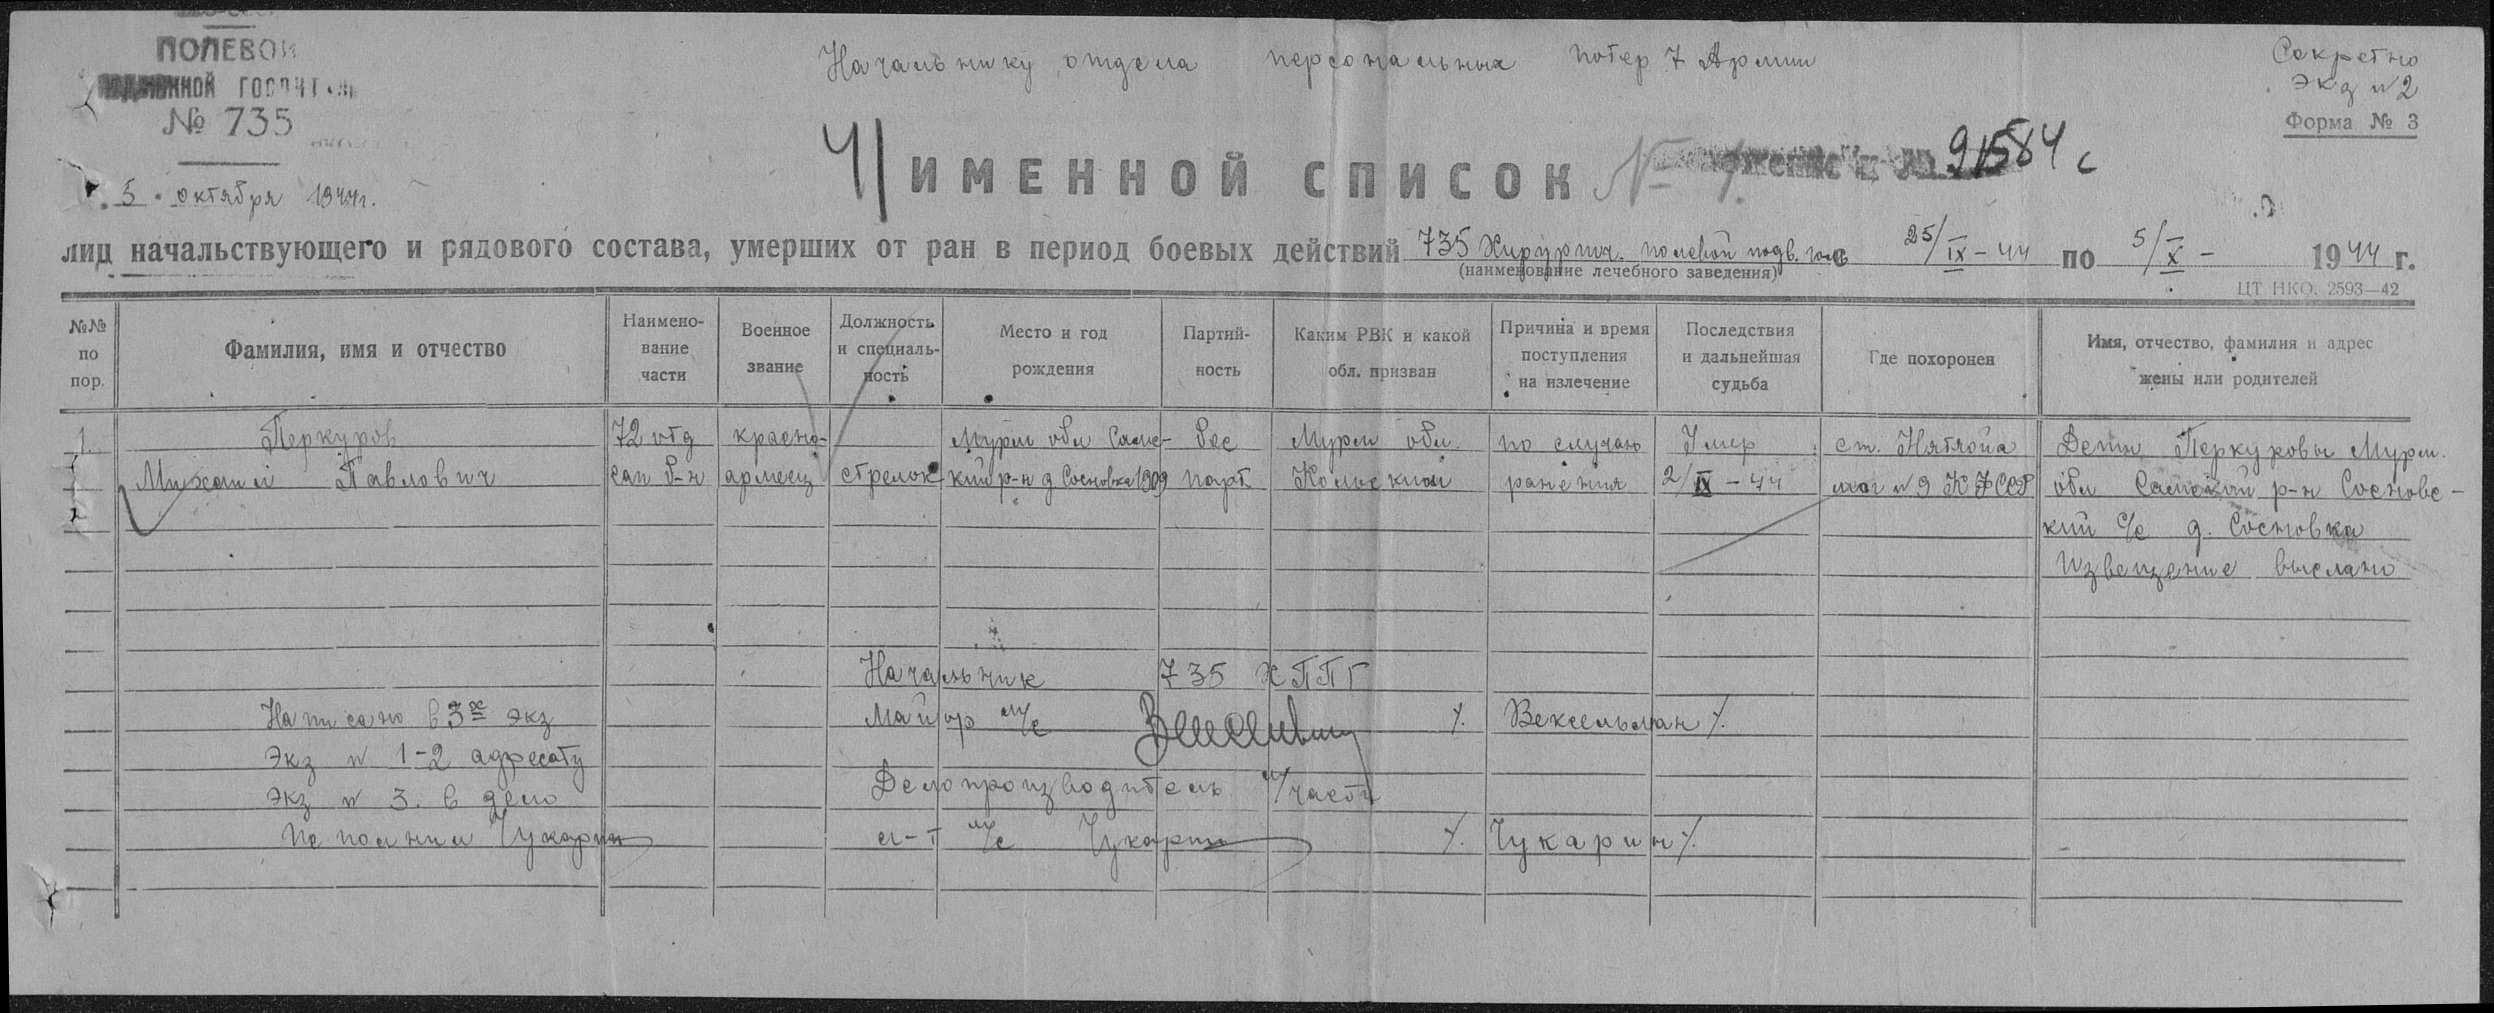 ПОЛЕВОЙ
ПОДВИЖНОЙ ГОСПИТАЛЬ
№ 735
5 октября 1944г.
Начальнику отдела персональных потер 7 Армии
Секретно
Экз № 2
Форма № 3
ИМЕННОЙ СПИСОК № 1.
91584 с
лиц начальствующего и рядового состава, умерших от ран в период боевых действий 735 Хирургич. полевой подв. гос с 25/IX-44 по 5/X- 1944 г.
(наименование лечебного заведения)
ЦТ НКО. 2593—42
№№ по пор.
Фамилия, имя и отчество
Наимено-вание части
Военное звание
Должность и специаль-ность
Место и год рождения
Партий-ность
Каким РВК и какой обл. призван
Причина и время поступления на излечение
Последствия и дальнейшая судьба
Где похоронен
Имя, отчество, фамилия и адрес жены или родителей
1. Перкуров 72 отд красно- Мурм обл Саам- бес Мурм обл. по случаю Умер ст. Нятяойа Дети Перкуровы Мурм.
Михаил Павлович сап б-н армеец стрелок кий р-н д Сосновка 1909 парт Кольский ранения 2/IX-44 мог № 9 КФССР обл Саамский р-н Сосновс-
кий с/с д. Сосновка
Извещение выслано
Начальник 735 ХППГ
Написано в 3х экз
Майор м/с /. Вексельман /.
Экз № 1-2 адресату
Делопроизводитель м/части
Экз № 3. в дело
Исполнил Чукарин
л-т м/с Чукарин /. Чукарин /.